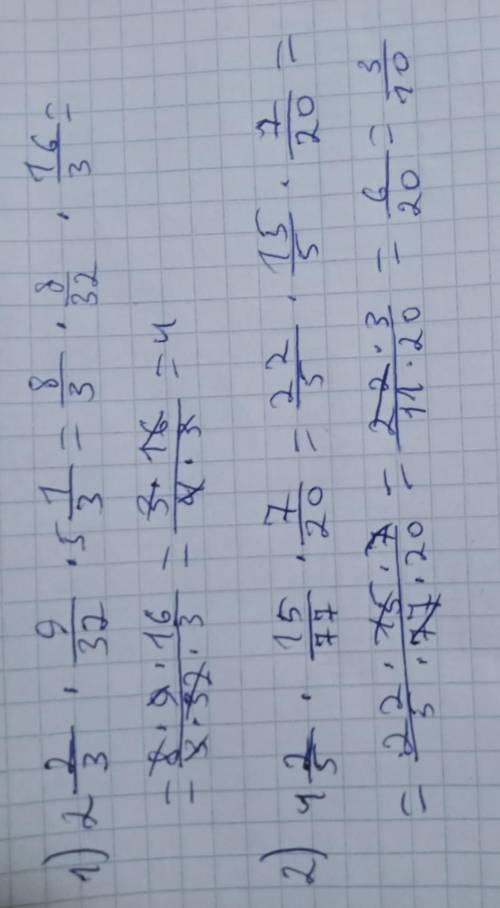 1) 2 2/3 · 9/32 · 5 1/3 = 8/3 · 8/32 · 16/3 =
= 8·9·16/3·32·3 = 3·16/4·3 = 4
2) 4 2/5 · 15/77 · 7/20 = 22/5 · 15/5 · 7/20 =
= 22·15·7/5·77·20 = 22·3/11·20 = 6/20 = 3/10